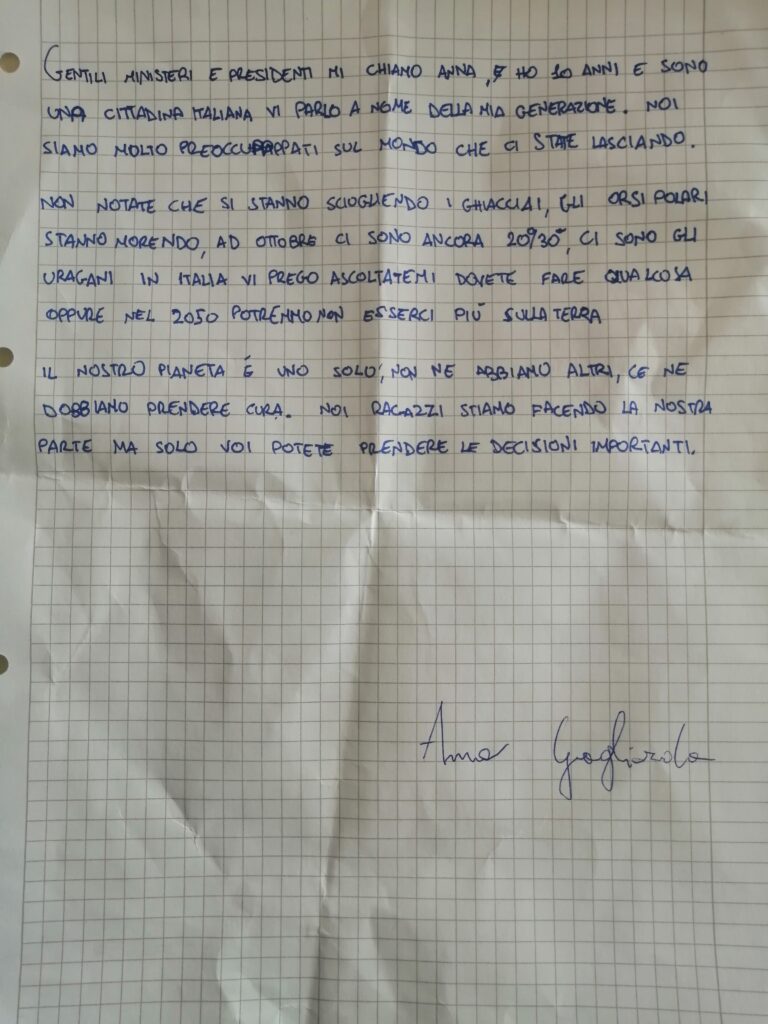 GENTILI MINISTERI E PRESIDENTI MI CHIAMO ANNA, HO 10 ANNI E SONO
UNA CITTADINA ITALIANA VI PARLO A NOME DELLA MIA GENERAZIONE. NOI
SIAMO MOLTO PREOCCUPAPPATI SUL MONDO CHE CI STATE LASCIANDO.
NON NOTATE CHE SI STANNO SCIOGLIENDO I GHIACCIAI, GLI ORSI POLARI
STANNO MORENDO, AD OTTOBRE CI SONO ANCORA 20°/30°, CI SONO GLI
URAGANI IN ITALIA VI PREGO ASCOLTATEMI DOVETE FARE QUALCOSA
OPPURE NEL 2050 POTREMMO NON ESSERCI PIÙ SULLA TERRA
IL NOSTRO PIANETA É UNO SOLO, NON NE ABBIAMO ALTRI, CE NE
DOBBIAMO PRENDERE CURA. NOI RAGAZZI STIAMO FACENDO LA NOSTRA
PARTE MA SOLO VOI POTETE PRENDERE LE DECISIONI IMPORTANTI.
Anna